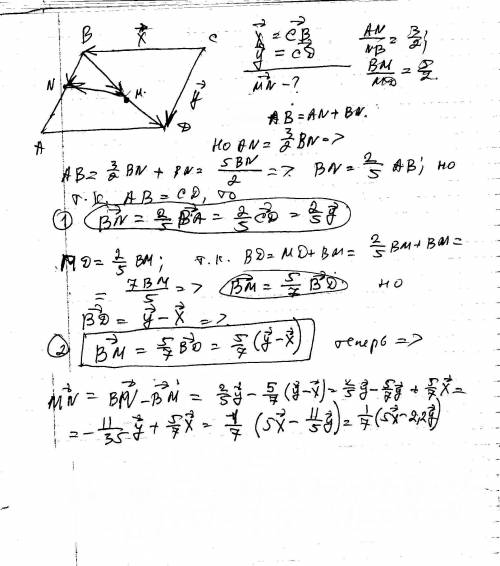 B x⃗ C
N M y⃗
A D
x⃗ = CB⃗
y⃗ = CD⃗
MN⃗ - ?
AN/NB = 3/2;
BM/MD = 5/2.
AB = AN + BN.
но AN = 3/2 BN =>
AB = 3/2 BN + BN = 5BN/2 => BN = 2/5 AB; но
т.к. AB = CD, то
① BN⃗ = 2/5 BA⃗ = 2/5 CD⃗ = 2/5 y⃗
MD = 2/5 BM; т.к. BD = MD + BM = 2/5 BM + BM =
= 7BM/5 => BM⃗ = 5/7 BD⃗. но
BD⃗ = y⃗ - x⃗ =>
② BM⃗ = 5/7 BD⃗ = 5/7 (y⃗ - x⃗) теперь =>
MN⃗ = BN⃗ - BM⃗ = 2/5 y⃗ - 5/7 (y⃗ - x⃗) = 2/5 y⃗ - 5/7 y⃗ + 5/7 x⃗ =
= - 11/35 y⃗ + 5/7 x⃗ = 1/7 (5x⃗ - 11/5 y⃗) = 1/7 (5x⃗ - 2,2y⃗)